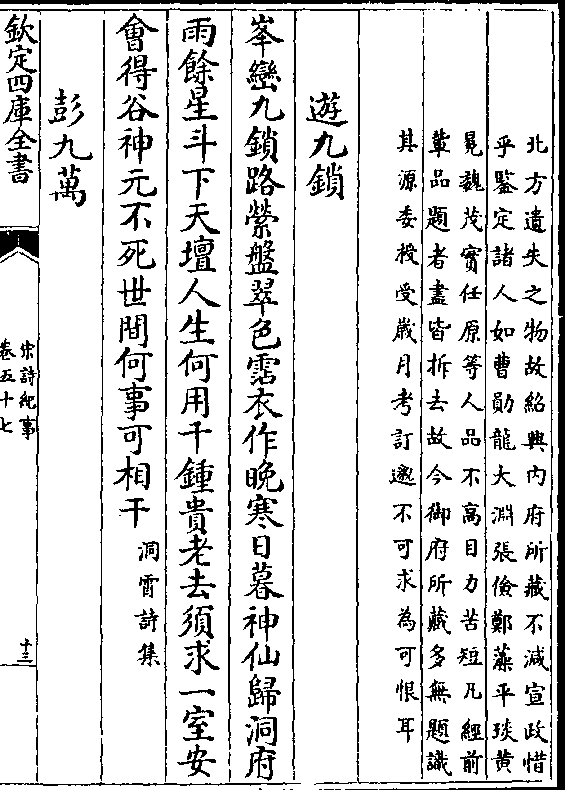 北方遺失之物故紹興内府所藏不減宣政惜
乎鑒定諸人如曹勛龍大淵張儉鄭藻平琰黄
冕魏茂實任原等人品不髙目力苦短凡經前
軰品題者盡皆拆去故今御府所藏多無題識
其源委授受嵗月考訂邈不可求為可恨耳
遊九鎖
峯巒九鎖路縈盤翠色霑衣作晚寒日暮神仙歸洞府
雨餘星斗下天壇人生何用千鍾貴老去須求一室安
會得谷神元不死世間何事可相干
洞霄詩集
彭九萬
欽定四庫全書
宋詩紀事
卷五十七
十三